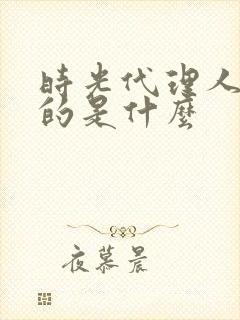 時光代理人
的是什麼
夜慕晨